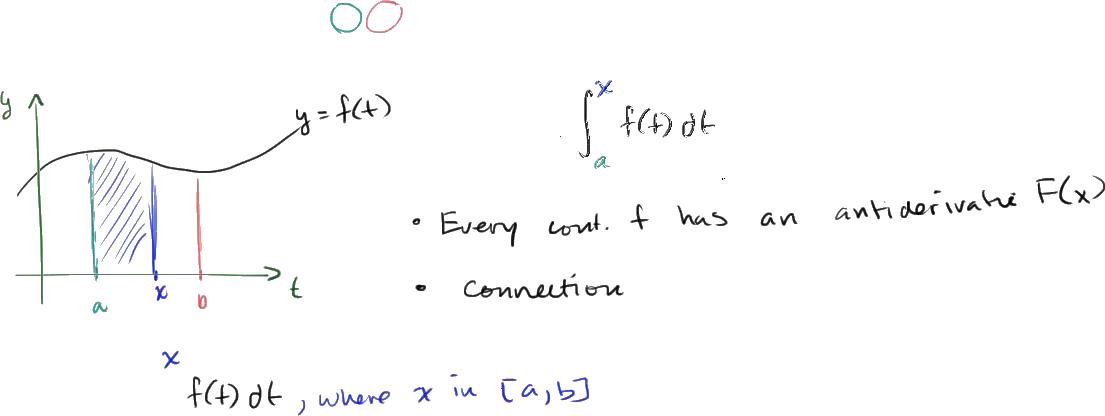 y
y = f(t)
a
x
b
t
∫ₐˣ f(t) dt
• Every cont. f has an antiderivative F(x)
• Connection
x
f(t) dt, where x in [a,b]